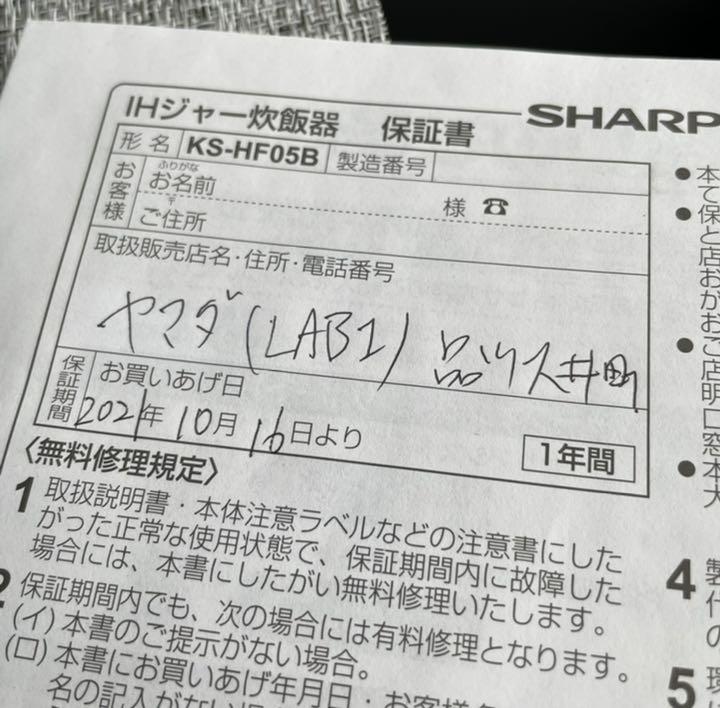 IHジャー炊飯器 保証書 SHARP
形名 KS-HF05B 製造番号
お客様
ふりがな
お名前 様 ☎
〒
ご住所
取扱販売店名・住所・電話番号
ヤマダ(LAB1) 品川大井町
保証期間
お買いあげ日
2021年 10月 16日より
1年間
〈無料修理規定〉
1 取扱説明書・本体注意ラベルなどの注意書にした
がった正常な使用状態で、保証期間内に故障した
場合には、本書にしたがい無料修理いたします。
2 保証期間内でも、次の場合には有料修理となります。
(イ)本書のご提示がない場合。
(ロ)本書にお買いあげ年月日・お客様
名の記入がない
●本
て
●保
と
店
お
が
お
●ご
店
明
口
窓
●本
大
4 製
代
の
5 環